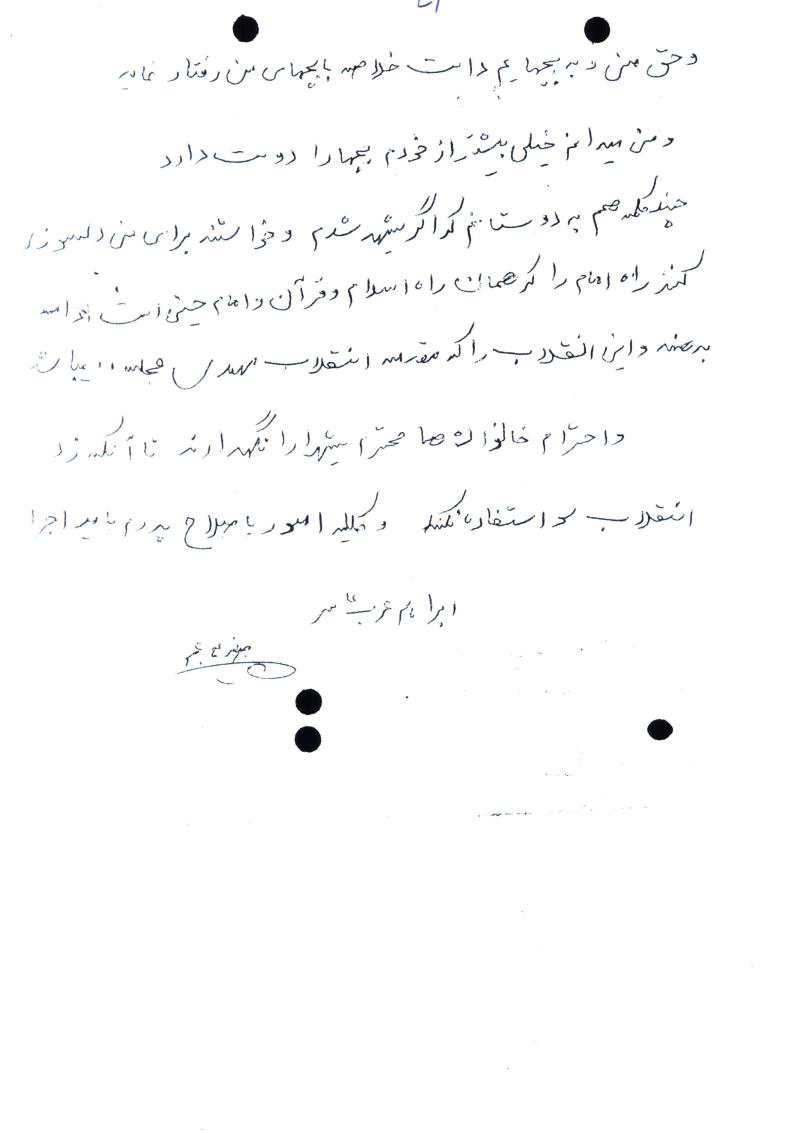 و حق منی و به بچهایم داشت خلاصه با بچهای من رفتار نماید
و من میدانم خیلی بیشتر از خودم بچهارا دوست دارد
چند کلمه هم به دوستانم که اگر شهید شدم و خواستند برای من دلسوزی
کنند راه امام را که همان راه اسلام و قرآن و امام حسین است ادامه
بدهند و این انقلاب را که مقدمه انقلاب مهدی میباشد
و احترام خانواده ها محترم شهدا را نگهدارند تا آنکه از
انقلاب سو استفاده نکنند و کلیه امور با صلاح پدرم باید اجرا
ابراهیم عرب